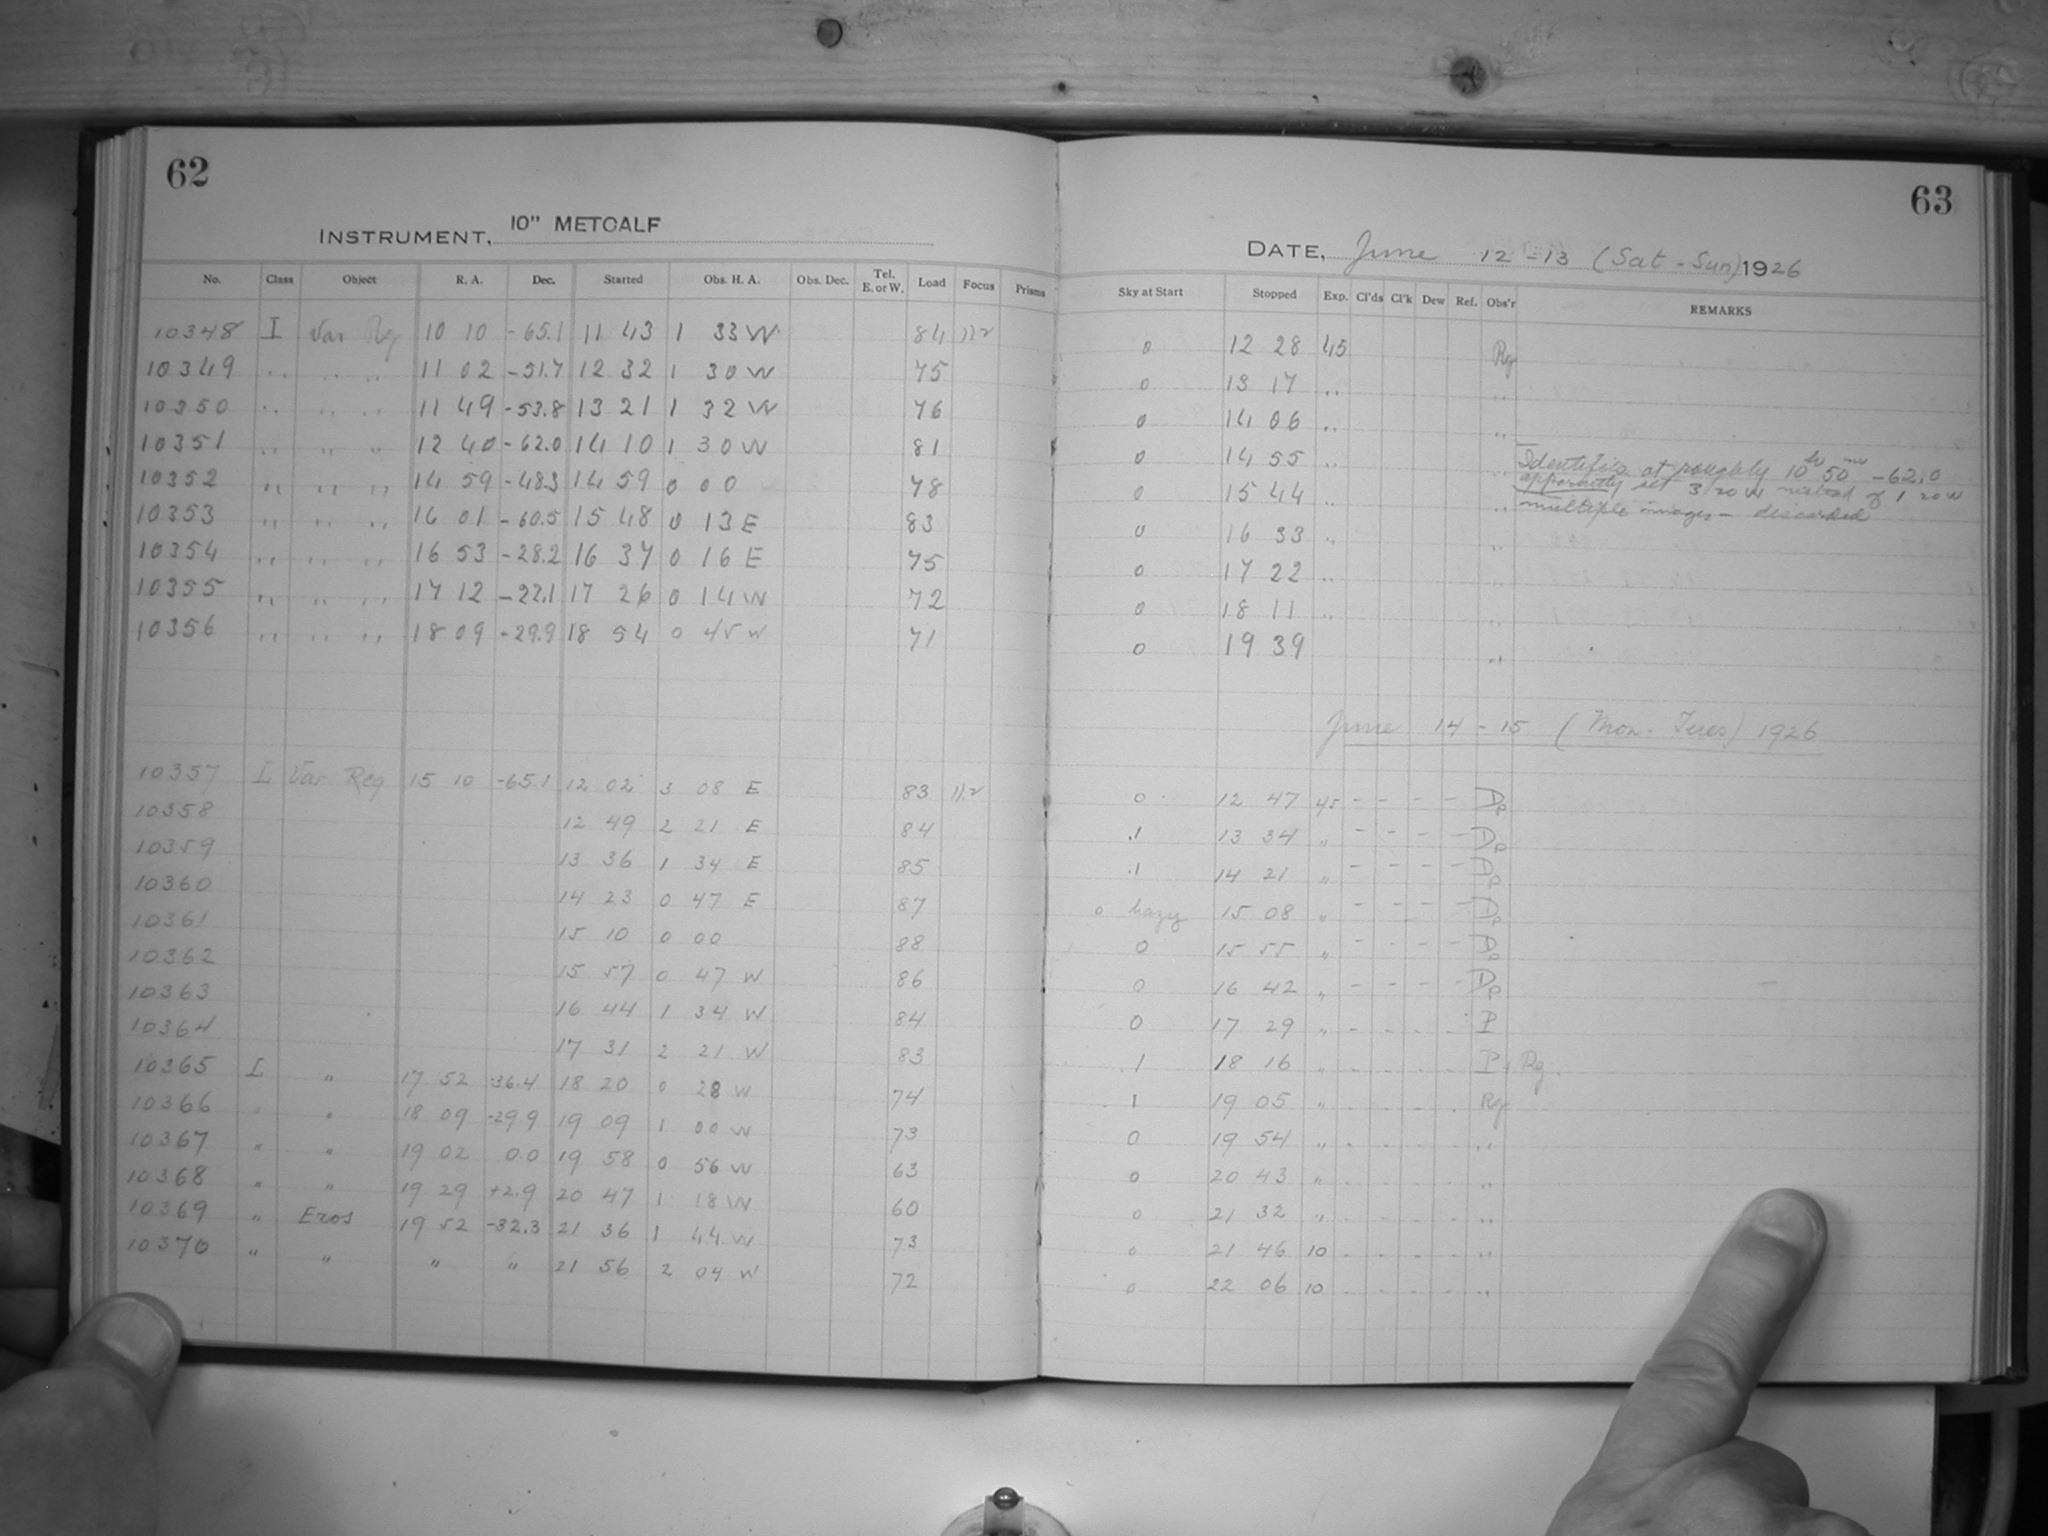 62
INSTRUMENT, 10" METCALF
No. Class Object R. A. Dec. Started Obs. H. A. Obs. Dec. Tel. E. or W. Load Focus Prisms
10348 I Var Rg 10 10 -65.1 11 43 1 33 W 84 11.2
10349 .. .. .. 11 02 -51.7 12 32 1 30 W 75
10350 .. .. .. 11 49 -53.8 13 21 1 32 W 76
10351 .. .. .. 12 40 -62.0 14 10 1 30 W 81
10352 .. .. .. 14 59 -48.3 14 59 0 00 78
10353 .. .. .. 16 01 -60.5 15 48 0 13 E 83
10354 .. .. .. 16 53 -28.2 16 37 0 16 E 75
10355 .. .. .. 17 12 -22.1 17 26 0 14 W 72
10356 .. .. .. 18 09 -29.9 18 54 0 45 W 71
10357 I Var Reg 15 10 -65.1 12 02 3 08 E 83 11.2
10358 12 49 2 21 E 84
10359 13 36 1 34 E 85
10360 14 23 0 47 E 87
10361 15 10 0 00 88
10362 15 57 0 47 W 86
10363 16 44 1 34 W 84
10364 17 31 2 21 W 83
10365 I " 17 52 -36.4 18 20 0 28 W 74
10366 " " 18 09 -29.9 19 09 1 00 W 73
10367 " " 19 02 0.0 19 58 0 56 W 63
10368 " " 19 29 +2.9 20 47 1 18 W 60
10369 " Eros 19 52 -32.3 21 36 1 44 W 73
10370 " " " " 21 56 2 04 W 72
63
DATE, June 12-13 (Sat-Sun) 1926
Sky at Start Stopped Exp. Cl'ds Cl'k Dew Ref. Obs'r REMARKS
0 12 28 45 Rg
0 13 17 .. ..
0 14 06 .. ..
0 14 55 .. .. Identified at roughly 10 hr 50 m -62.0
apparently set 3 20 W instead of 1 20 W
0 15 44 .. .. multiple images - discarded
0 16 33 .. ..
0 17 22 .. ..
0 18 11 .. ..
0 19 39 ..
June 14-15 (Mon-Tues) 1926
0 12 47 45 - - - - Dp
.1 13 34 " - - - - Dp
.1 14 21 " - - - - Dp
0 hazy 15 08 " - - - - Dp
0 15 55 " - - - - Dp
0 16 42 " - - - - Dp
0 17 29 " - - - - P
.1 18 16 " - - - - P, Rg.
1 19 05 " - - - - Rg
0 19 54 " - - - - ..
0 20 43 " - - - - ..
0 21 32 " - - - - ..
0 21 46 10 - - - - ..
0 22 06 10 - - - - ..